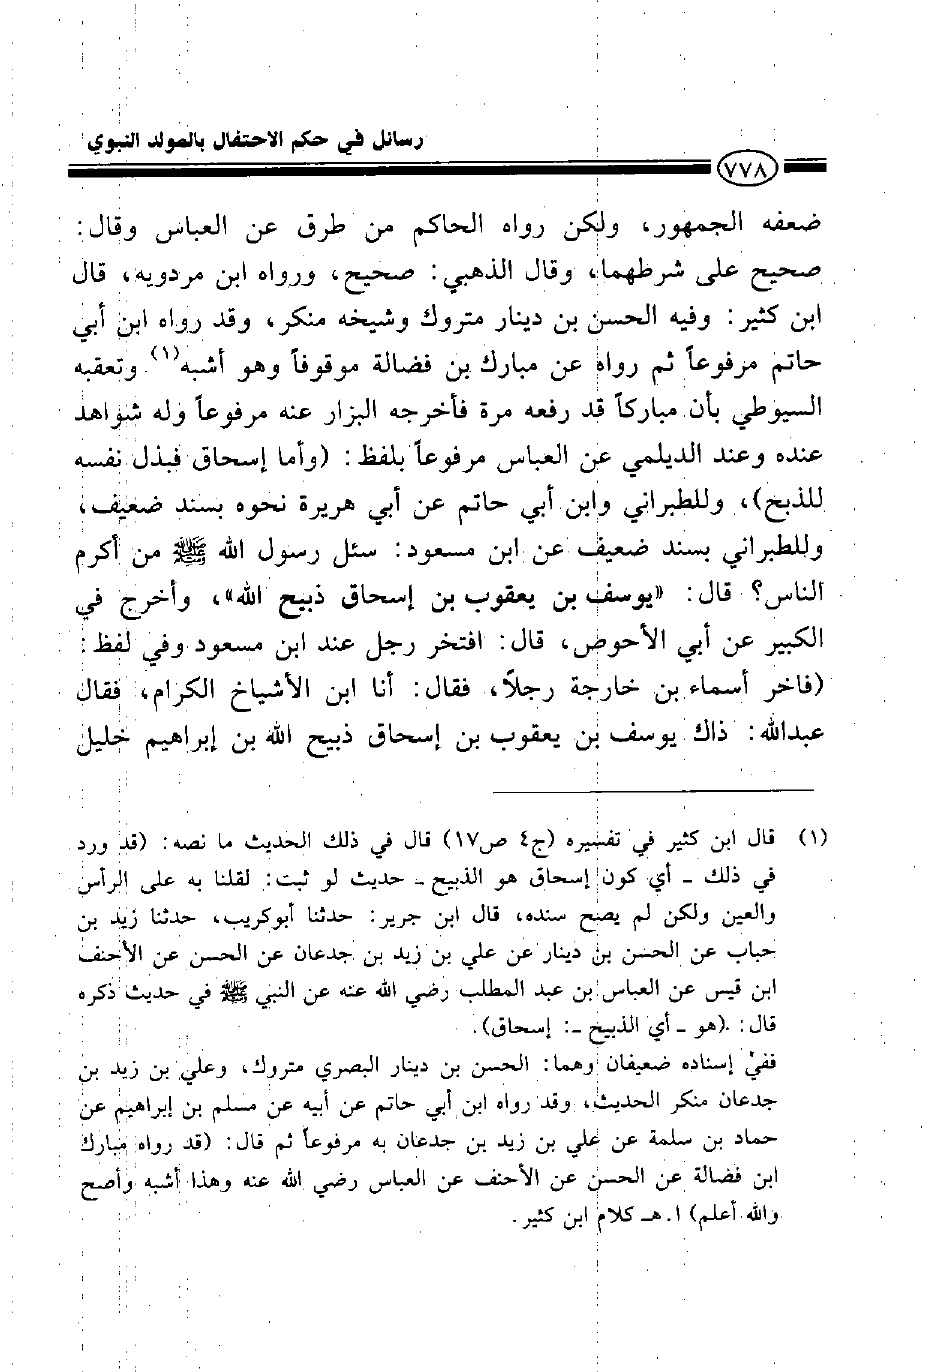 رسائل في حكم الاحتفال بالمولد النبوي
٧٧٨
ضعفه الجمهور، ولكن رواه الحاكم من طرق عن العباس وقال:
صحيح على شرطهما، وقال الذهبي: صحيح، ورواه ابن مردويه، قال
ابن كثير: وفيه الحسن بن دينار متروك وشيخه منكر، وقد رواه ابن أبي
حاتم مرفوعاً ثم رواه عن مبارك بن فضالة موقوفاً وهو أشبه(١) وتعقبه
السيوطي بأن مباركاً قد رفعه مرة فأخرجه البزار عنه مرفوعاً وله شواهد
عنده وعند الديلمي عن العباس مرفوعاً بلفظ: (وأما إسحاق فبذل نفسه
للذبح)، وللطبراني وابن أبي حاتم عن أبي هريرة نحوه بسند ضعيف،
وللطبراني بسند ضعيف عن ابن مسعود: سئل رسول الله ﷺ من أكرم
الناس؟ قال: «يوسف بن يعقوب بن إسحاق ذبيح الله»، وأخرج في
الكبير عن أبي الأحوض، قال: افتخر رجل عند ابن مسعود وفي لفظ:
(فاخر أسماء بن خارجة رجلاً، فقال: أنا ابن الأشياخ الكرام، فقال
عبدالله: ذاك يوسف بن يعقوب بن إسحاق ذبيح الله بن إبراهيم خليل
(١) قال ابن كثير في تفسيره (ج٤ ص١٧) قال في ذلك الحديث ما نصه: (قد ورد
في ذلك - أي كون إسحاق هو الذبيح - حديث لو ثبت: لقلنا به على الرأس
والعين ولكن لم يصح سنده، قال ابن جرير: حدثنا أبوكريب، حدثنا زيد بن
حباب عن الحسن بن دينار عن علي بن زيد بن جدعان عن الحسن عن الأحنف
ابن قيس عن العباس بن عبد المطلب رضي الله عنه عن النبي ﷺ في حديث ذكره
قال: (هو - أي الذبيح -: إسحاق).
ففي إسناده ضعيفان وهما: الحسن بن دينار البصري متروك، وعلي بن زيد بن
جدعان منكر الحديث، وقد رواه ابن أبي حاتم عن أبيه عن مسلم بن إبراهيم عن
حماد بن سلمة عن علي بن زيد بن جدعان به مرفوعاً ثم قال: (قد رواه مبارك
ابن فضالة عن الحسن عن الأحنف عن العباس رضي الله عنه وهذا أشبه وأصح
والله أعلم) ا.هـ كلام ابن كثير.